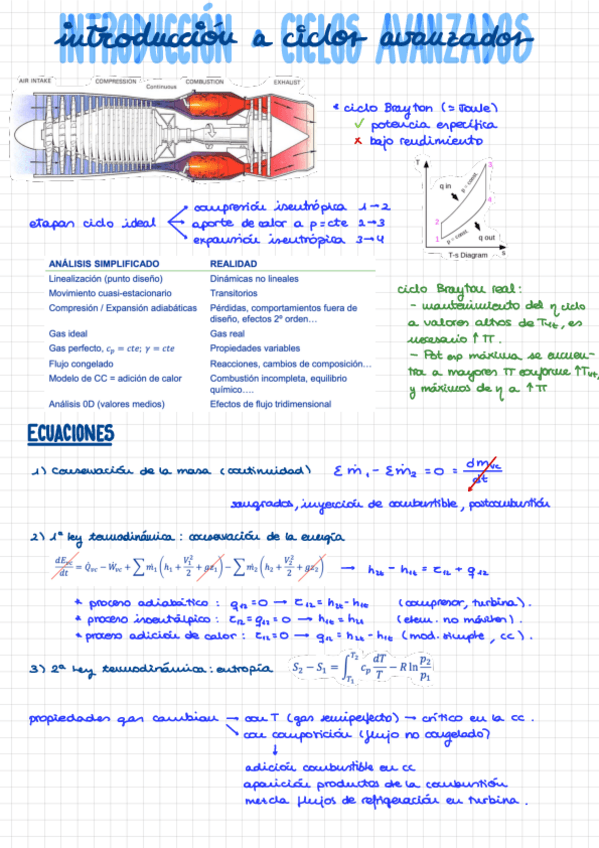 INTRODUCCIÓN A CICLOS AVANZADOS
introducción a ciclos avanzados
AIR INTAKE COMPRESSION COMBUSTION EXHAUST
Continuous
* ciclo Brayton (= Joule)
✓ potencia específica
x bajo rendimiento
etapas ciclo ideal
compresión isentrópica 1→2
aporte de calor a p=cte 2→3
expansión isentrópica 3→4
T
3
q in
p = const.
4
2
1
p = const.
q out
T-s Diagram
s
ANÁLISIS SIMPLIFICADO REALIDAD
Linealización (punto diseño) Dinámicas no lineales
Movimiento cuasi-estacionario Transitorios
Compresión / Expansión adiabáticas Pérdidas, comportamientos fuera de
diseño, efectos 2º orden…
Gas ideal Gas real
Gas perfecto, c_p = cte; γ = cte Propiedades variables
Flujo congelado Reacciones, cambios de composición…
Modelo de CC = adición de calor Combustión incompleta, equilibrio
químico….
Análisis 0D (valores medios) Efectos de flujo tridimensional
ciclo Brayton real:
- mantenimiento del η ciclo
a valores altos de T4t, es
necesario ↑π.
- Pot esp máxima se encuen-
tra a mayores π conforme ↑T4t,
y máximos de η a ↑π
ECUACIONES
1) Conservación de la masa (continuidad) Σṁ₁ - Σṁ₂ = 0 = dm_vc/dt
sangrados, inyección de combustible, postcombustión
2) 1ª ley termodinámica: conservación de la energía
dE_vc/dt = Q̇_vc − Ẇ_vc + ∑ ṁ₁ (h₁ + V₁²/2 + gz₁) − ∑ ṁ₂ (h₂ + V₂²/2 + gz₂) → h2t - h1t = τ12 + q12
* proceso adiabático: q12=0 → τ12 = h2t - h1t (compresor, turbina).
* proceso isoentálpico: τ12=q12=0 → h1t = h2t (elem. no móviles).
* proceso adición de calor: τ12=0 → q12 = h2t - h1t (mod. simple, cc).
3) 2ª ley termodinámica: entropía S₂ − S₁ = ∫_T₁^T₂ c_p dT/T − R ln p₂/p₁
propiedades gas cambian → con T (gas semiperfecto) → crítico en la cc.
↘ con composición (flujo no congelado)
↓
adición combustible en cc
aparición productos de la combustión
mezcla flujos de refrigeración en turbina.